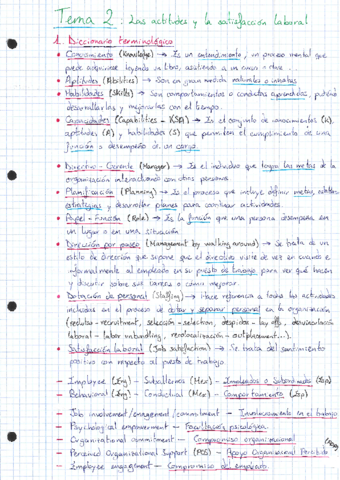 Tema 2: Las actitudes y la satisfacción laboral
1. Diccionario terminológico
• Conocimiento (Knowledge) → Es un entendimiento, un proceso mental que
puede adquirirse leyendo un libro, asistiendo a un curso o clase.
• Aptitudes (Abilities) → Son en gran medida naturales o innatas
• Habilidades (Skills) → Son comportamientos o conductas aprendidas, pudiendo
desarrollarlas y mejorarlas con el tiempo.
• Capacidades (Capabilities - KSA) → Es el conjunto de conocimientos (K),
aptitudes (A) y habilidades (S) que permiten el cumplimiento de una
función o desempeño de un cargo
• Directivo - Gerente (Manager) → Es el individuo que logra las metas de la
organización interactuando con otras personas
• Planificación (Planning) → Es el proceso que incluye definir metas, establecer
estrategias y desarrollar planes para coordinar actividades.
• Papel - Función (Role) → Es la función que una persona desempeña en
un lugar o en una situación
• Dirección por paseo (Management by walking around) → Se trata de un
estilo de dirección que supone que el directivo visite de vez en cuando e
informalmente al empleado en su puesto de trabajo para ver qué hacen
y discutir sobre sus tareas o cómo mejorar
• Dotación de personal (Staffing) → Hace referencia a todas las actividades
incluidas en el proceso de dotar y separar personal en la organización
(reclutas - recruitment, selección - selection, despidos - lay offs, desvinculación
laboral - labor unbundling, recolocación - outplacement...).
• Satisfacción laboral (Job satisfaction) → Se trata del sentimiento
positivo con respecto al puesto de trabajo
— Employee (Ing) - Subalternos (Mex) - Empleados o Subordinados (Esp)
— Behavioral (Ing) - Conductual (Mex) - Comportamiento (Esp)
— Job involvement/engagement/commitment - Involucramiento en el trabajo
— Psychological empowerment - Facultación psicológica
— Organizational commitment - Compromiso organizacional
— Perceived Organizational Support (POS) - Apoyo Organizacional Percibido
— Employee engagement - Compromiso del empleado